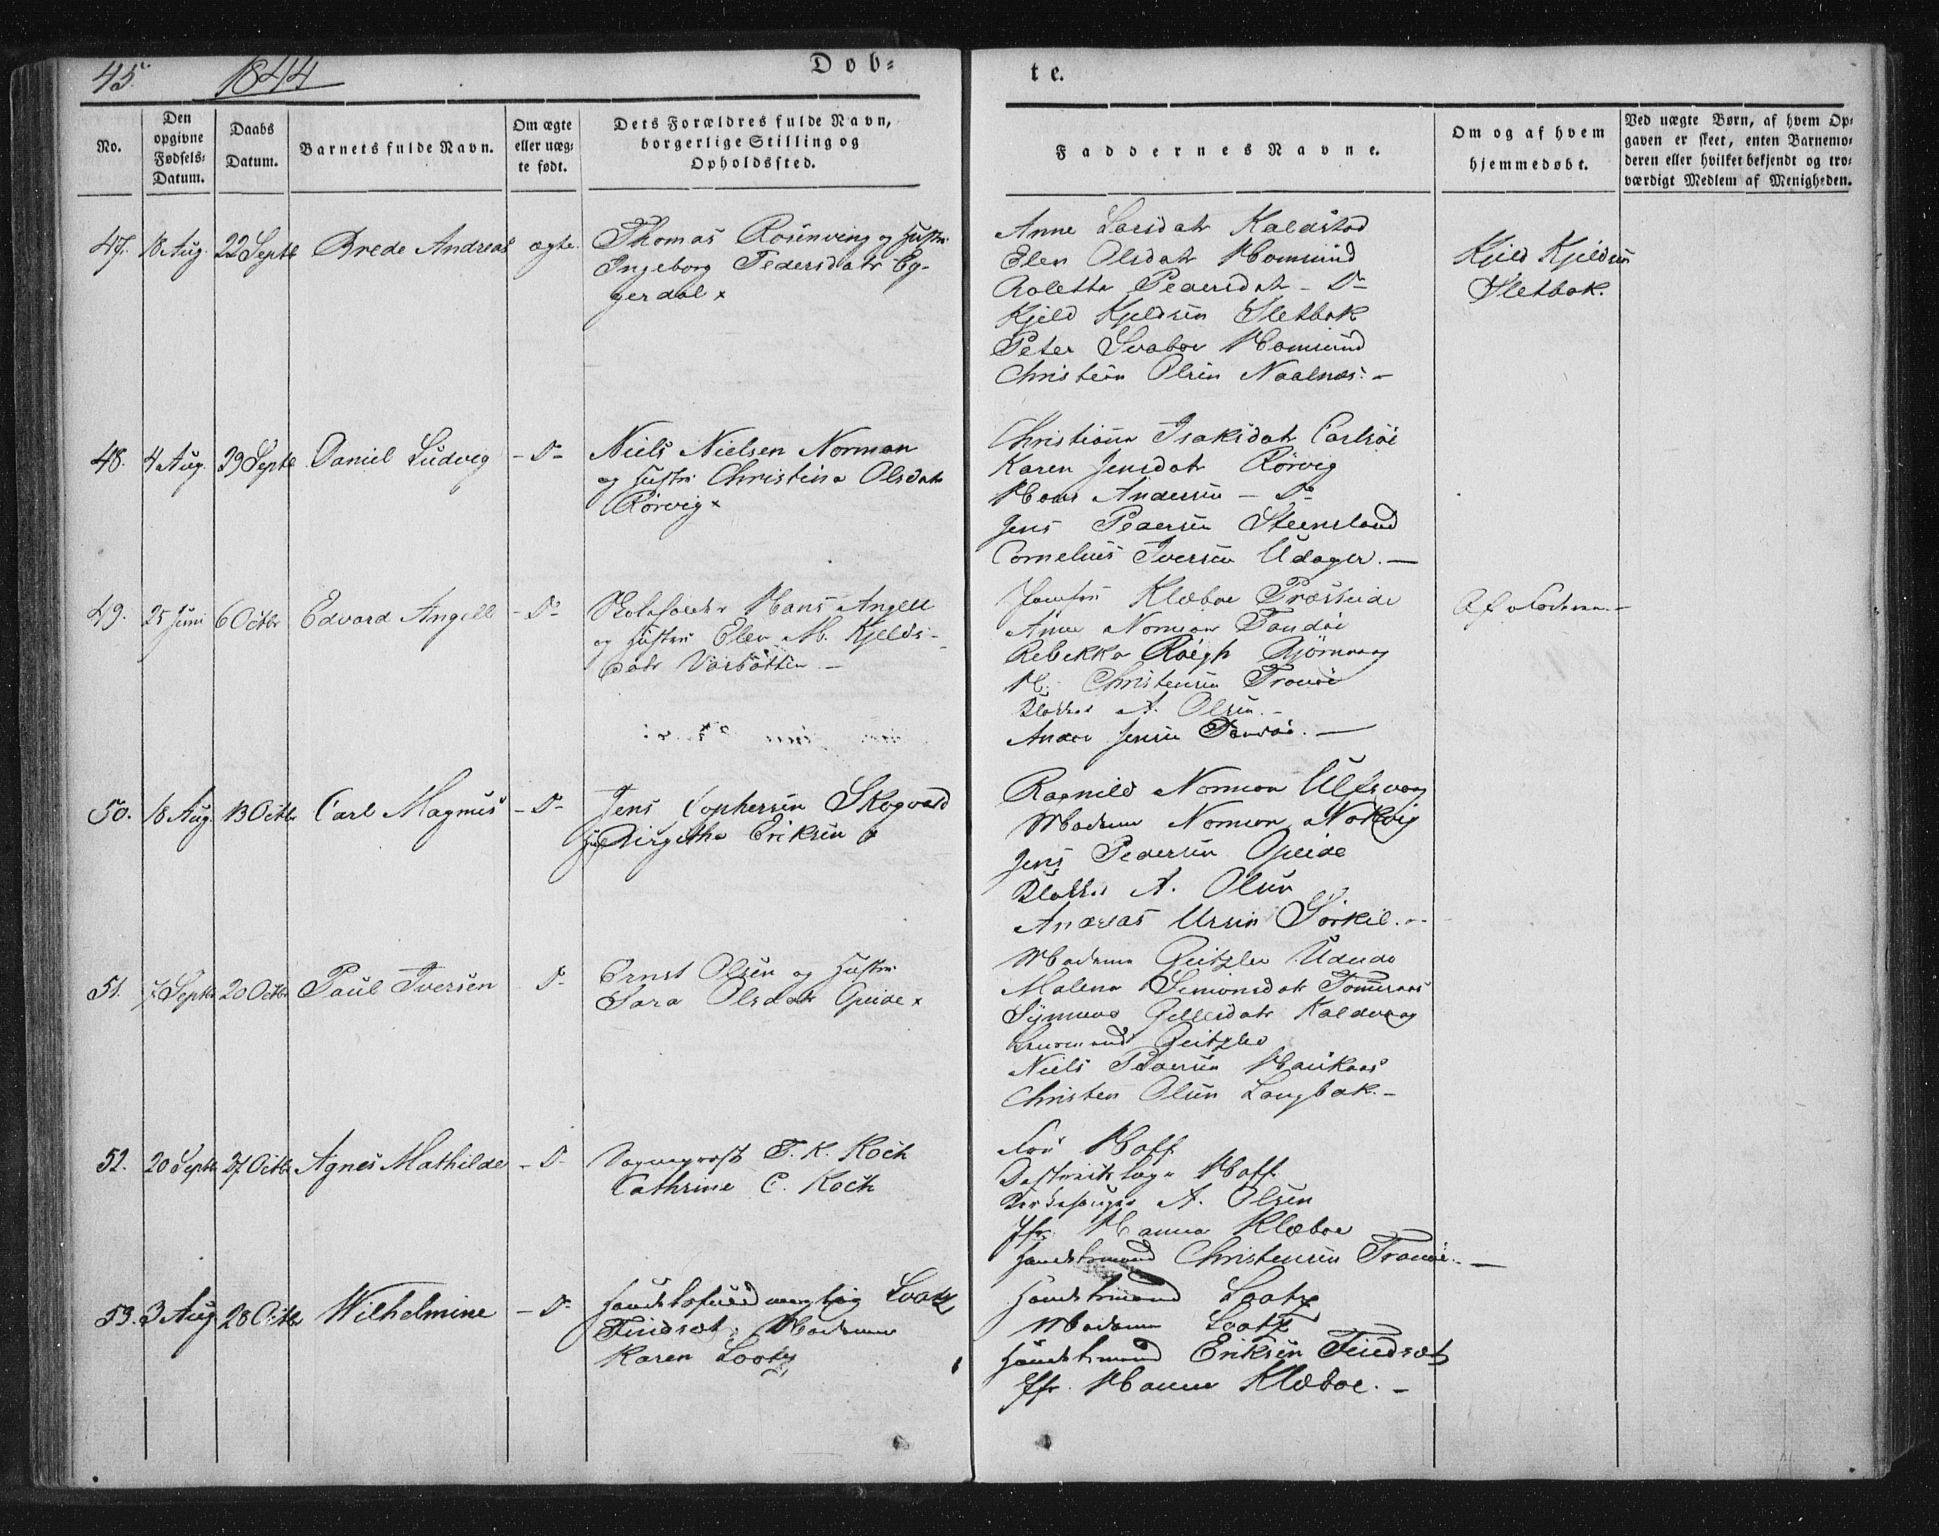 45. 1844 Dob- te.
No.
Den opgivne Fødsels- Datum.
Daabs Datum.
Barnets fulde Navn.
Om ægte eller uæg- te født.
Dets Forældres fulde Navn, borgerlige Stilling og Opholdssted.
Faddernes Navne.
Om og af hvem hjemmedøbt.
Ved uægte Børn, af hvem Op- gaven er skeet, enten Barnemo- deren eller hvilket bekjendt og tro- værdigt Medlem af Menigheden.
47. 18 Aug. 22 Septb Brede Andreas ægte
Thomas Rosenving og Hustru
Ingeborg Pedersdatr Eg-
gerdal x
Anne Larsdatr Kaldstad
Elen Olsdatr Hamsund
Roletta Pedersdatr - Do
Kjeld Kjeldsen Sletbak
Peter Svaboe Hamsund
Christian Olsen Naalnæs. -
Kjeld Kjeldsen
Sletbak.
48. 4 Aug. 29 Septb Daniel Ludvig - Do -
Niels Nielsen Norman
og Hustru Christina Olsdatr
Rörvig x
Christiana Isaksdatr Carlsöe
Karen Jensdatr Rörvig
Hans Andersen - Do
Jens Pedersen Steensland
Cornelius Iversen Udager. -
49. 25 Juni 6 Octbr Edvard Angell - Do
Hans Angell
og Hustru Elen M. Kjelds-
datr Varbotten -
Klæboe Præsteide
Anne Norman Tandöe
Rebekka Bjørnaag
H. Christensen Tranöe
Klokker A. Olsen. -
Jensen
50. 18 Aug. 13 Octbr Carl Magnus - Do -
Jens Tophersen Skogvold
Birgitha Eriksen x
Ragnild Norman Ulfsvaag
Madame Norman Nordvig
Jens Pedersen Gjeide
Klokker A. Olsen
Andreas Ursin Sörkil. -
51. 7 Septb 20 Octbr Paul Iversen - Do
Ernst Olsen og Hustru
Sara Olsdatr Gjeide x
Madame Geitzler
Malena Simonsdatr Tommeraas
Kaldvaag
Geitzler
Niels Pedersen Haukaas
Christen Olsen Langbak. -
52. 20 Septb 27 Octbr Agnes Mathilde - Do -
F. K. Koch
Cathrine C. Koch
Fru Hoff
Hoff
A. Olsen
Jfr. Hanna Klæboe
Handelsmand Christensen Tranöe. -
53. 3 Aug 28 Octbr Wilhelmine - Do
Lootz
Findsæt, Madame
Karen Lootz
Handelsmand Lootz
Madame Lootz
Handelsmand Eriksen Findsæt
Jfr. Hanna Klæboe. -